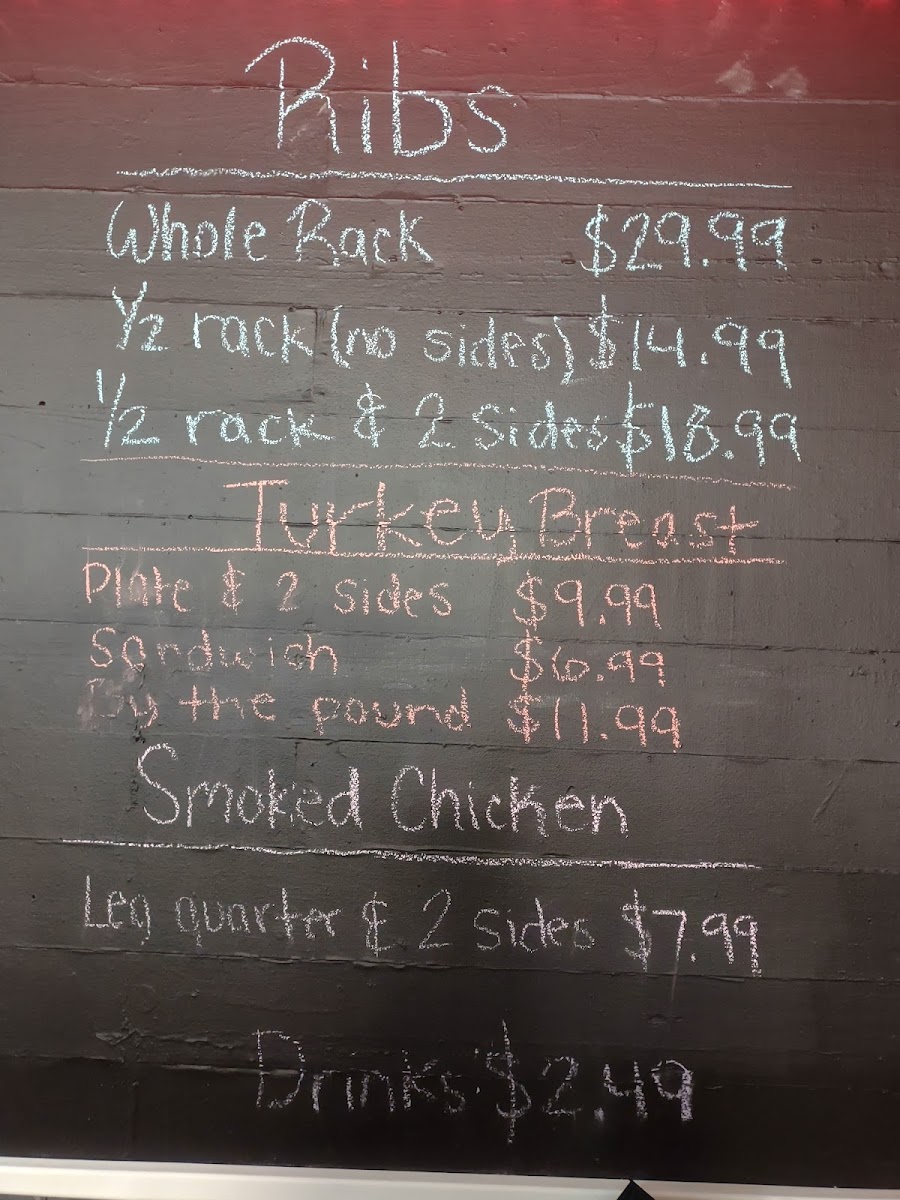 Ribs
Whole Rack $29.99
1/2 rack (no sides) $14.99
1/2 rack & 2 Sides $18.99
Turkey Breast
Plate & 2 sides $9.99
Sandwich $6.99
By the pound $11.99
Smoked Chicken
Leg quarter & 2 sides $7.99
Drinks: $2.49